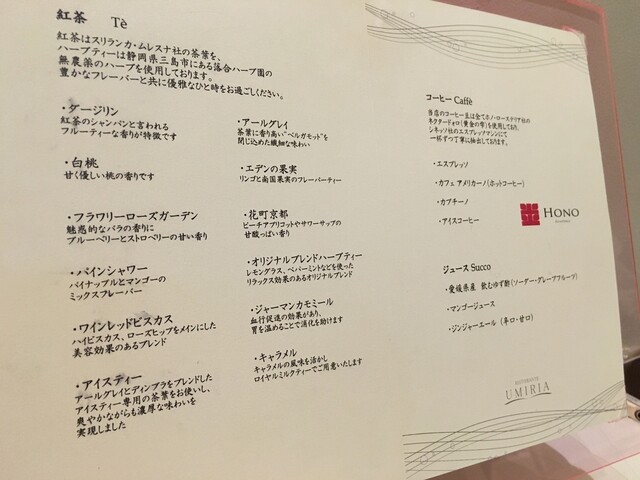 紅茶 Tè
紅茶はスリランカ・ムレスナ社の茶葉を、
ハーブティーは静岡県三島市にある落合ハーブ園の
無農薬のハーブを使用しております。
豊かなフレーバーと共に優雅なひと時をお過ごしください。
・ダージリン
紅茶のシャンパンと言われる
フルーティーな香りが特徴です
・白桃
甘く優しい桃の香りです
・フラワリーローズガーデン
魅惑的なバラの香りに
ブルーベリーとストロベリーの甘い香り
・パインシャワー
パイナップルとマンゴーの
ミックスフレーバー
・ワインレッドビスカス
ハイビスカス、ローズヒップをメインにした
美容効果のあるブレンド
・アイスティー
アールグレイとディンブラをブレンドした
アイスティー専用の茶葉をお使いし、
爽やかながらも濃厚な味わいを
実現しました
・アールグレイ
茶葉に香り高い"ベルガモット"を
閉じ込めた繊細な味わい
・エデンの果実
リンゴと南国果実のフレーバーティー
・花町京都
ピーチアプリコットやサワーサップの
甘酸っぱい香り
・オリジナルブレンドハーブティー
レモングラス、ペパーミントなどを使った
リラックス効果のあるオリジナルブレンド
・ジャーマンカモミール
血行促進の効果があり、
胃を温めることで消化を助けます
・キャラメル
キャラメルの風味を活かし
ロイヤルミルクティーでご用意いたします
コーヒー Caffè
当店のコーヒー豆は全てホノ・ローステリア社の
ネクタードォロ(黄金の雫)を使用しており、
シネッソ社のエスプレッソマシンにて
一杯ずつ丁寧に抽出しております。
・エスプレッソ
・カフェ アメリカーノ (ホットコーヒー)
・カプチーノ
・アイスコーヒー
HONO
ジュース Succo
・愛媛県産 飲むゆず酢 (ソーダー・グレープフルーツ)
・マンゴージュース
・ジンジャーエール (辛口・甘口)
RISTORANTE
UMIRIA